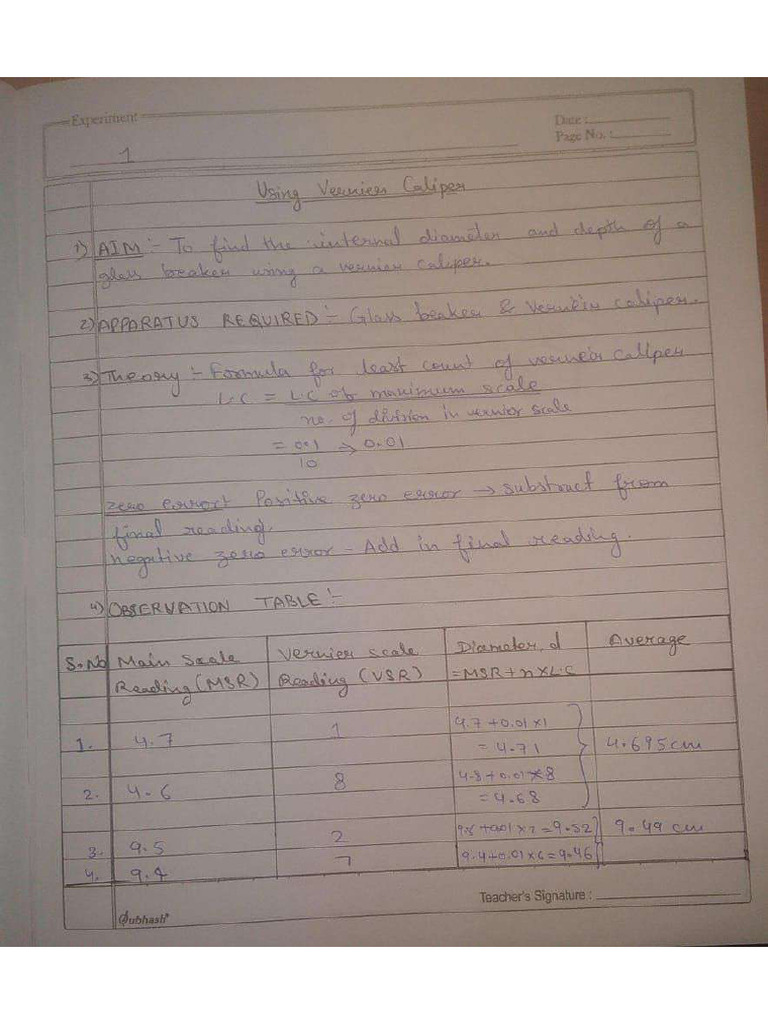 Experiment
Date :
Page No. :
1
Using Vernier Caliper
1) AIM :- To find the internal diameter and depth of a
glass beaker using a vernier caliper.
2) APPARATUS REQUIRED :- Glass beaker & Verneir caliper.
3) Theory :- Formula for least count of verneir callper
L.C = L.C of maximum scale
no. of division in vernier scale
= 0.1 → 0.01
10
zero error: Positive zero error → substract from
final reading.
negative zero error - Add in final reading.
4) OBSERVATION TABLE :-
S.No Main Scale Vernier scale Diameter, d Average
Reading (MSR) Reading (VSR) = MSR + n x L.C
1. 4.7 1 4.7 + 0.01 x 1
= 4.71 4.695 cm
2. 4.6 8 4.8 + 0.01 x 8
= 4.68
3. 9.5 2 + 0.01 x 2 = 9.52 9.49 cm
4. 9.4 7 9.4 + 0.01 x 6 = 9.46
Teacher's Signature :
Subhash